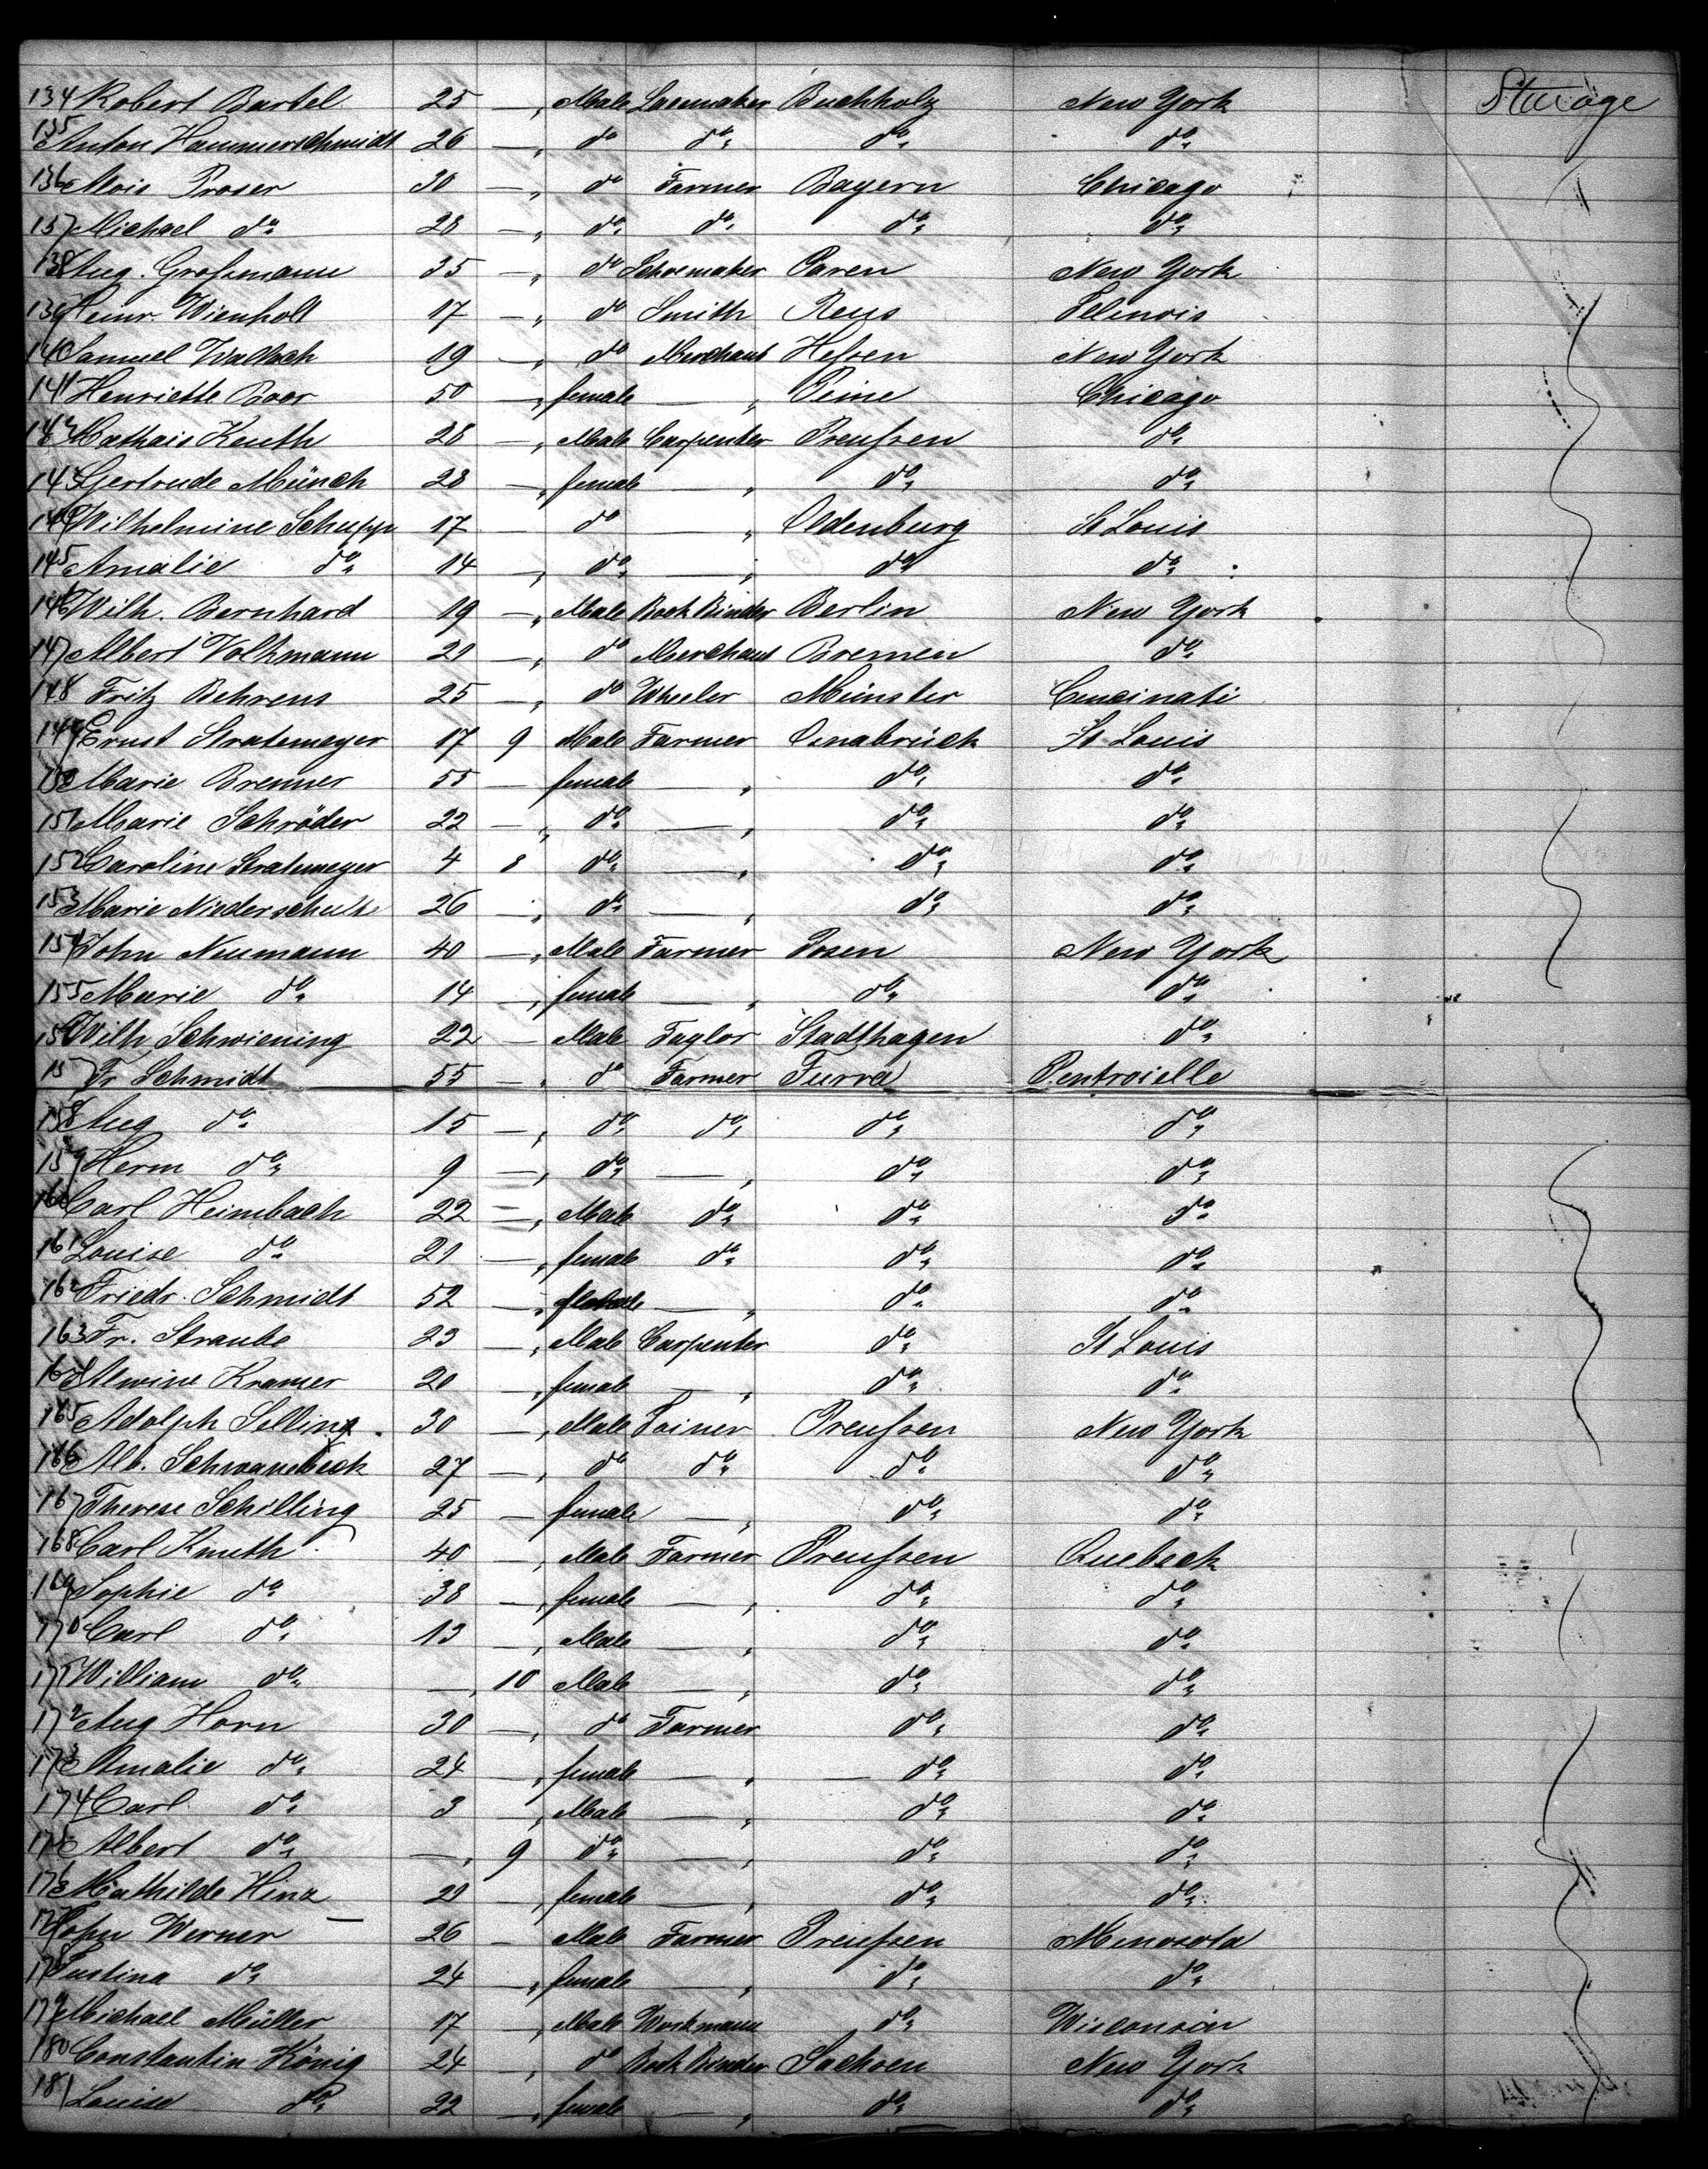 134 Robert Bartel 25 — Male Lacemaker Buchholz New York Steerage
135 Anton Hammerschmidt 26 — do do do do
136 Alois Proser 30 — do Farmer Bayern Chicago
137 Michael do 28 — do do do do
138 Aug. Großmann 35 — do Schoemaker New York
139 Heinr. Wienholt 17 — do Smith Reus Illinois
140 Samuel Wallach 19 — do Merchant Heßen New York
141 Henriette Boor 50 — female — Peine Chicago
142 Mathais Keuth 28 — Male Carpenter Preußen do
143 Gertrude Münch 28 — female — do do
144 Wilhelmine Schupp 17 — do — Oldenburg St Louis
145 Amalie do 14 — do — do do
146 Wilh. Bernhard 19 — Male Book Binder Berlin New York
147 Albert Volkmann 21 — do Merchant Bremen do
148 Fritz Behrens 25 — do Wheeler Münster Cincinati
149 Ernst Stratemeyer 17 9 Male Farmer Osnabrück St Louis
150 Marie Brenner 55 — female — do do
151 Marie Schröder 22 — do — do do
152 Caroline Stratemeyer 4 8 do — do do
153 Marie Niederschulte 26 — do — do do
154 John Neumann 40 — Male Farmer Posen New York
155 Marie do 14 — female — do do
156 Wilh. Schwiening 22 — Male Taylor Stadthagen do
157 Fr Schmidt 55 — do Farmer Furra
158 Aug do 15 — do do do do
159 Herm do 9 — do — do do
160 Carl Heimbach 22 — Male do do do
161 Louise do 21 — female do do do
162 Friedr. Schmidt 52 — — do do
163 Fr. Straube 23 — Male Carpenter do St Louis
164 Alwine Kramer 20 — female — do do
165 Adolph Selling 30 — Male Joiner Preußen New York
166 Alb. Schwanebeck 27 — do do do do
167 Therese Schilling 25 — female — do do
168 Carl Knuth 40 — Male Farmer Preußen Quebeck
169 Sophie do 38 — female — do do
170 Carl do 13 — Male — do do
171 William do — 10 Male — do do
172 Aug Horn 30 — do Farmer do do
173 Amalie do 24 — female — do do
174 Carl do 3 — Male — do do
175 Albert do — 9 do — do do
176 Mathilde Hinz 29 — female — do do
177 John Werner 26 — Male Farmer Preußen Menosota
178 Justina do 24 — female — do do
179 Michael Müller 17 — Male Workmann do Wisconsin
180 Constantin König 24 — do Book Binder Sachsen New York
181 Louise do 22 — female — do do